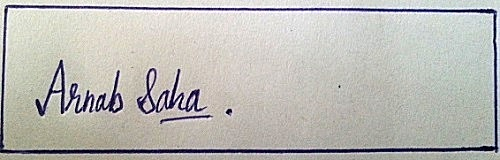 Arnab Saha .